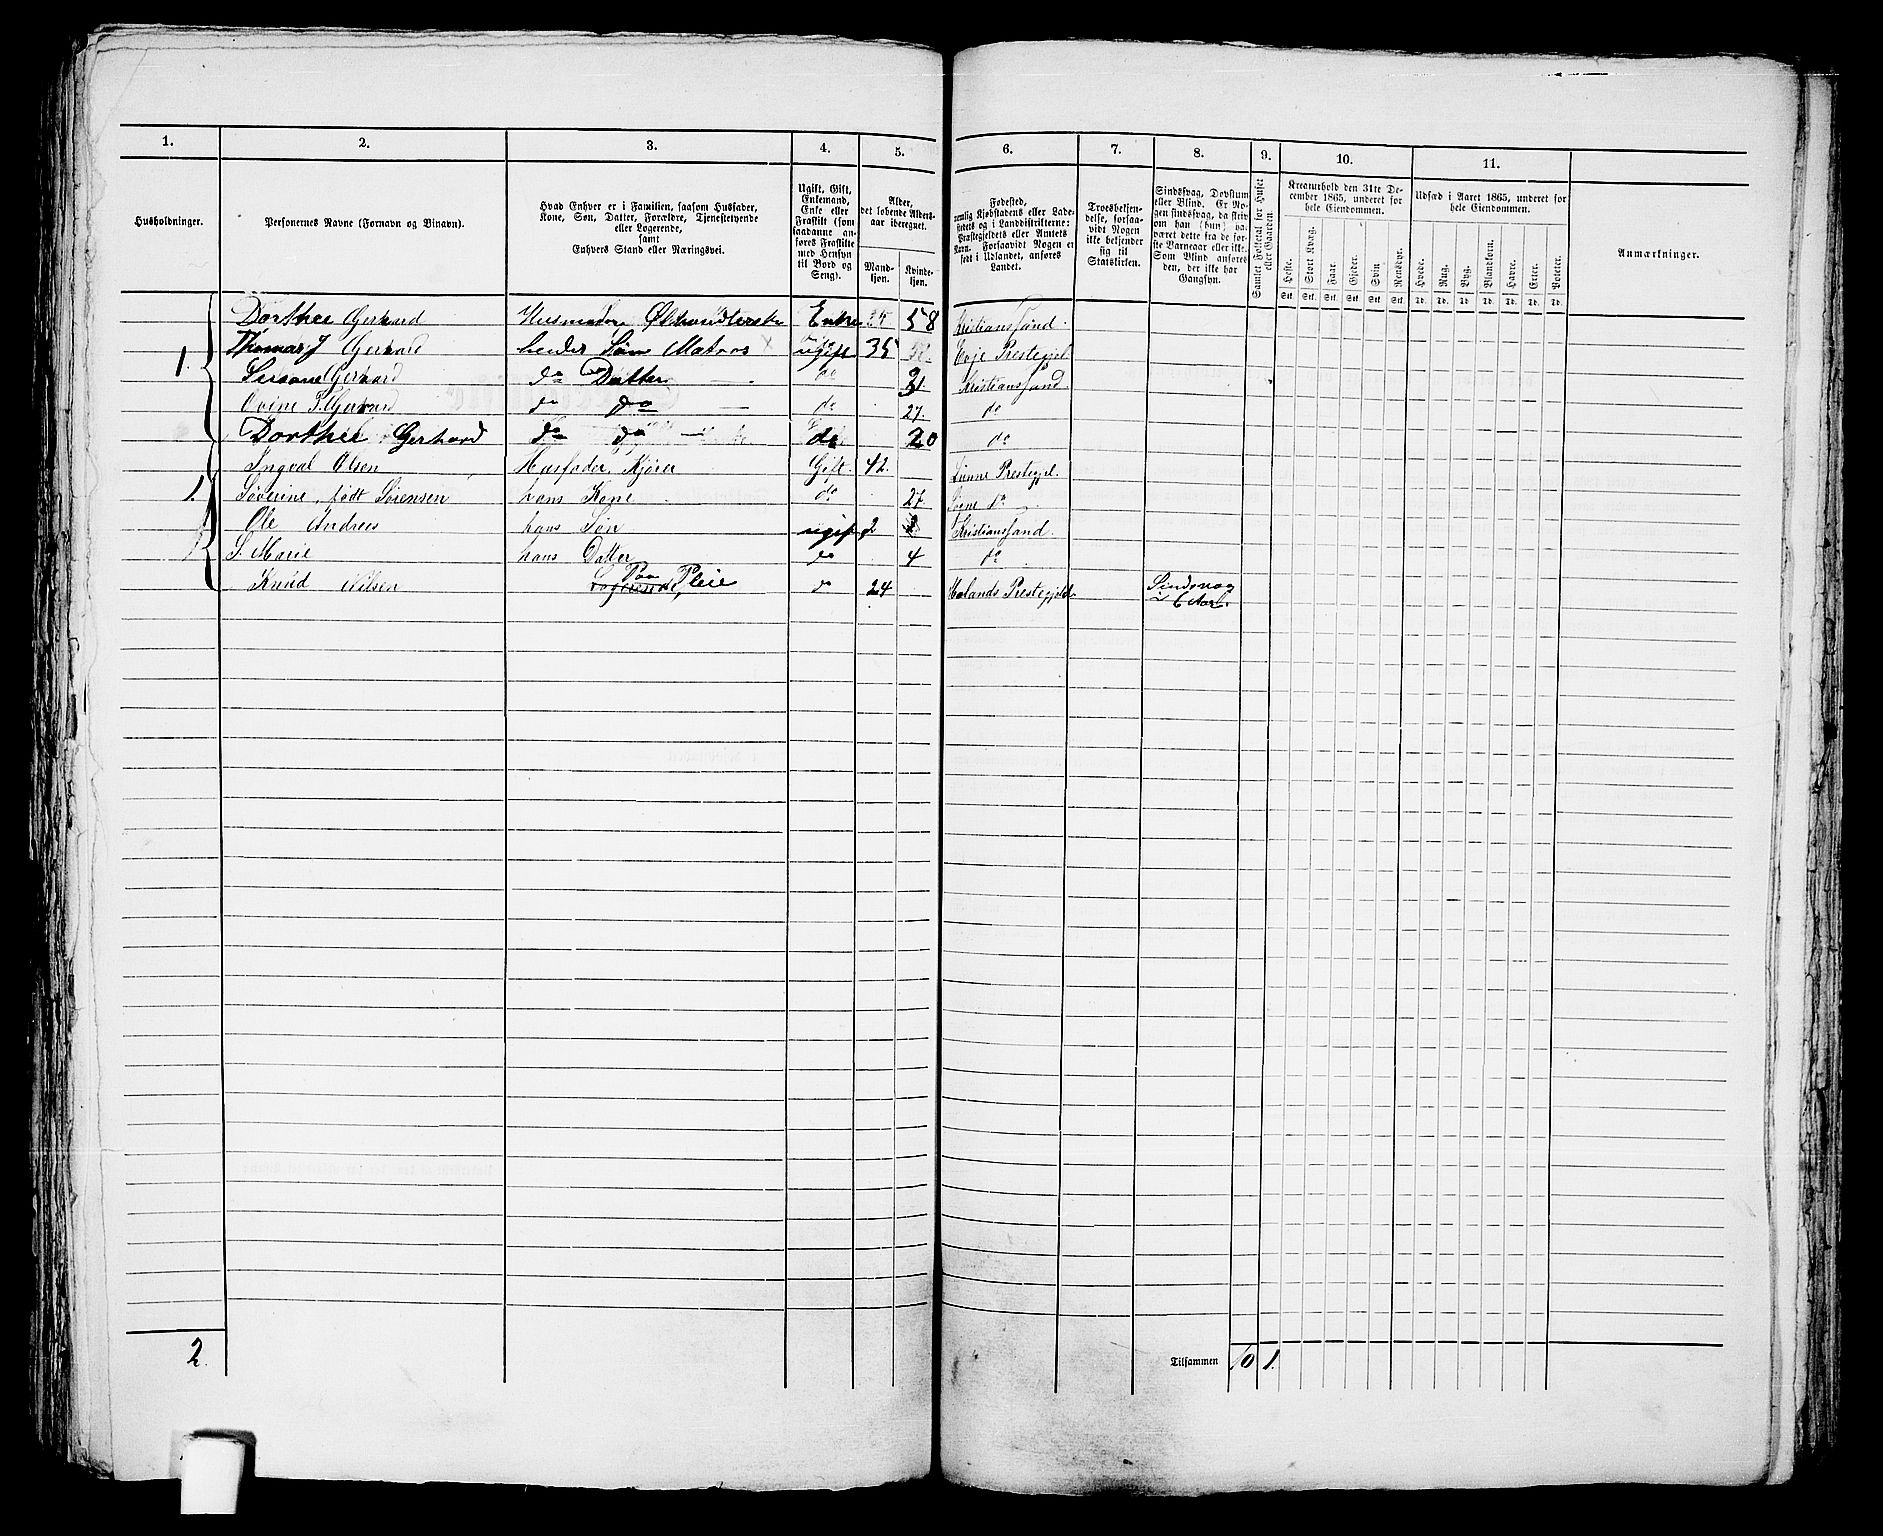 1. 2. 3. 4. 5. 6. 7. 8. 9. 10. 11.
Husholdninger.
Personernes Navne (Fornavn og Binavn).
Hvad Enhver er i Familien, saasom Husfader,
Kone, Søn, Datter, Forældre, Tjenestetyende
eller Logerende,
samt
Enhvers Stand eller Næringsvei.
Ugift, Gift,
Enkemand,
Enke eller
Fraskilt (som
saadanne an-
føres Fraskilte
med Hensyn
til Bord og
Seng).
Alder,
det løbende Alders-
aar iberegnet.
Mand-
kjøn.
Kvinde-
kjøn.
Fødested,
nemlig Kjøbstadens eller Lade-
stedets og i Landdistrikterne:
Præstegjeldets eller Annexets
Navn. Forsaavidt Nogen er
født i Udlandet, anføres
Landet.
Troesbekjen-
delse, forsaa-
vidt Nogen
ikke bekjender
sig til
Statskirken.
Sindssvag, Døvstum
eller Blind. Er No-
gen sindssvag, da skriv
om han (hun) va-
været dette fra de før-
ste Barneaar eller ikke.
Som Blind anføres
den, der ikke har
Gangsyn.
Samlet Folketal for Huset
eller Gaarden.
Kreaturhold den 31te De-
cember 1865, underet for
hele Eiendommen.
Heste. Stort Kvæg. Faar. Gjeder. Svin Rensdyr.
Stk. Stk. Stk. Stk. Stk. Stk.
Udsæd i Aaret 1865, underet for
hele Eiendommen.
Hvede. Rug. Byg. Blandkorn. Havre. Erter. Poteter.
Td. Td. Td. Td. Td. Td. Td.
Anmærkninger.
Dorthee Gerhard Husmoder Ølhandlerske Enke 58 Kristianssand.
1. Thomas J Gerhard hendes Søn Matros ugift 35 Evje Prestegjel
Gerhard do Datter do 31. Kristianssand
Gerhard do do do 27. do
Dorthee Gerhard do do do 20 do
Ingval Olsen Husfader, Kjører Gift. 42. Prestegjel.
1. Søverine, født Sørensen hans Kone do 27 Søgne do
Ole Andreas hans Søn ugift 2 Kristianssand.
S. Marie hans Datter do 4 do
Knud Nilsen Logerende, Paa Pleie do 24 Holands Prestegjeld Sindsvag
2. Tilsammen 10 1.